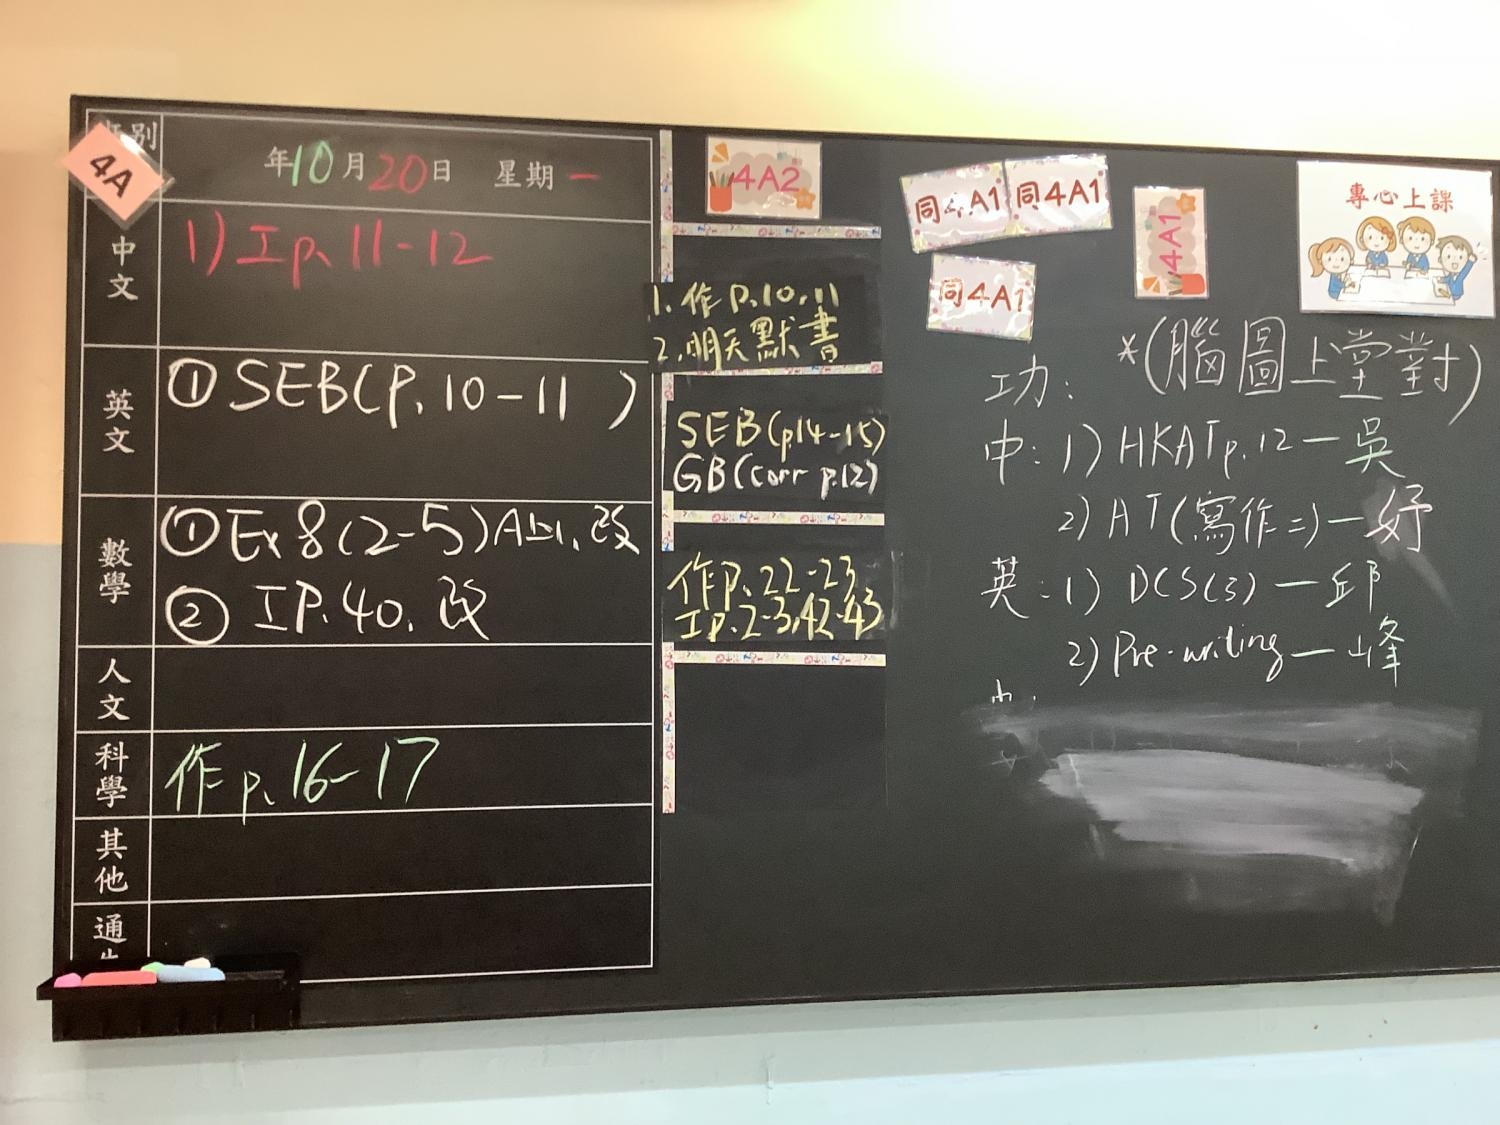 別
4A
年10月20日 星期一
中文
1) I p. 11-12
英文
① SEB(P. 10-11 )
數學
① Ex 8 (2-5) 改
② I P. 40. 改
人文
科學
作 p. 16-17
其他
通
4A2
1. 作 P. 10, 11
2. 明天默書
SEB (p14-15)
GB (corr p.12)
作 P. 22-23
I P. 2-3, 42-43
同4A1
同4A1
同4A1
4A1
專心上課
*(腦圖上堂對)
功:
中: 1) HKAT p. 12 — 吳
2) AT (寫作二) — 妤
英: 1) DCS(3) — 邱
2) Pre-writing — 峰